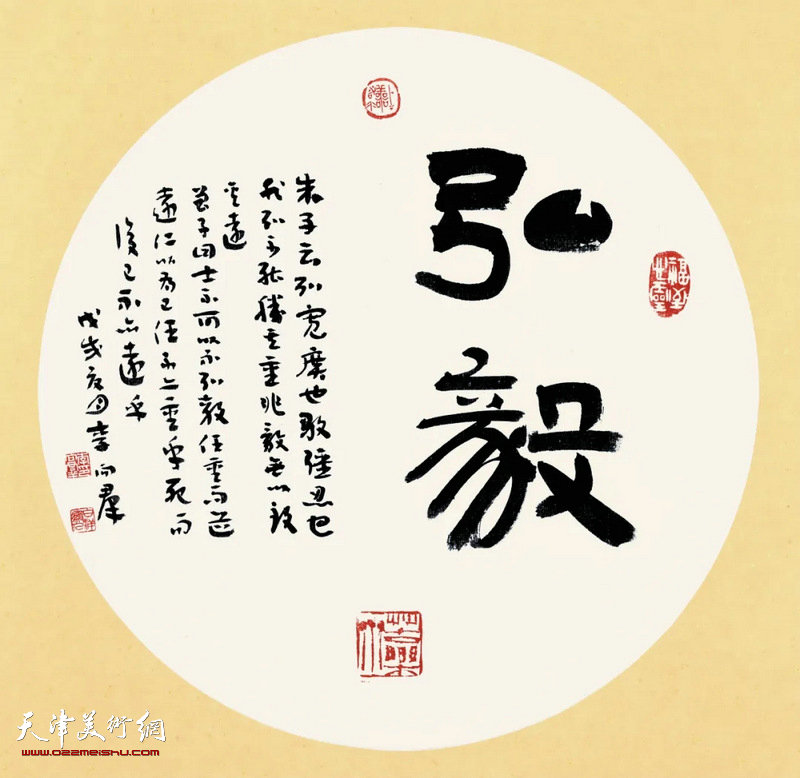 弘毅
朱子云弘寬廣也毅強忍也
非弘不能勝其重非毅無以致
其遠
曾子曰士不可以不弘毅任重而道
遠仁以為己任不亦重乎死而
後已不亦遠乎
戊戌夏月李向群
天津美術網
www.022meishu.com